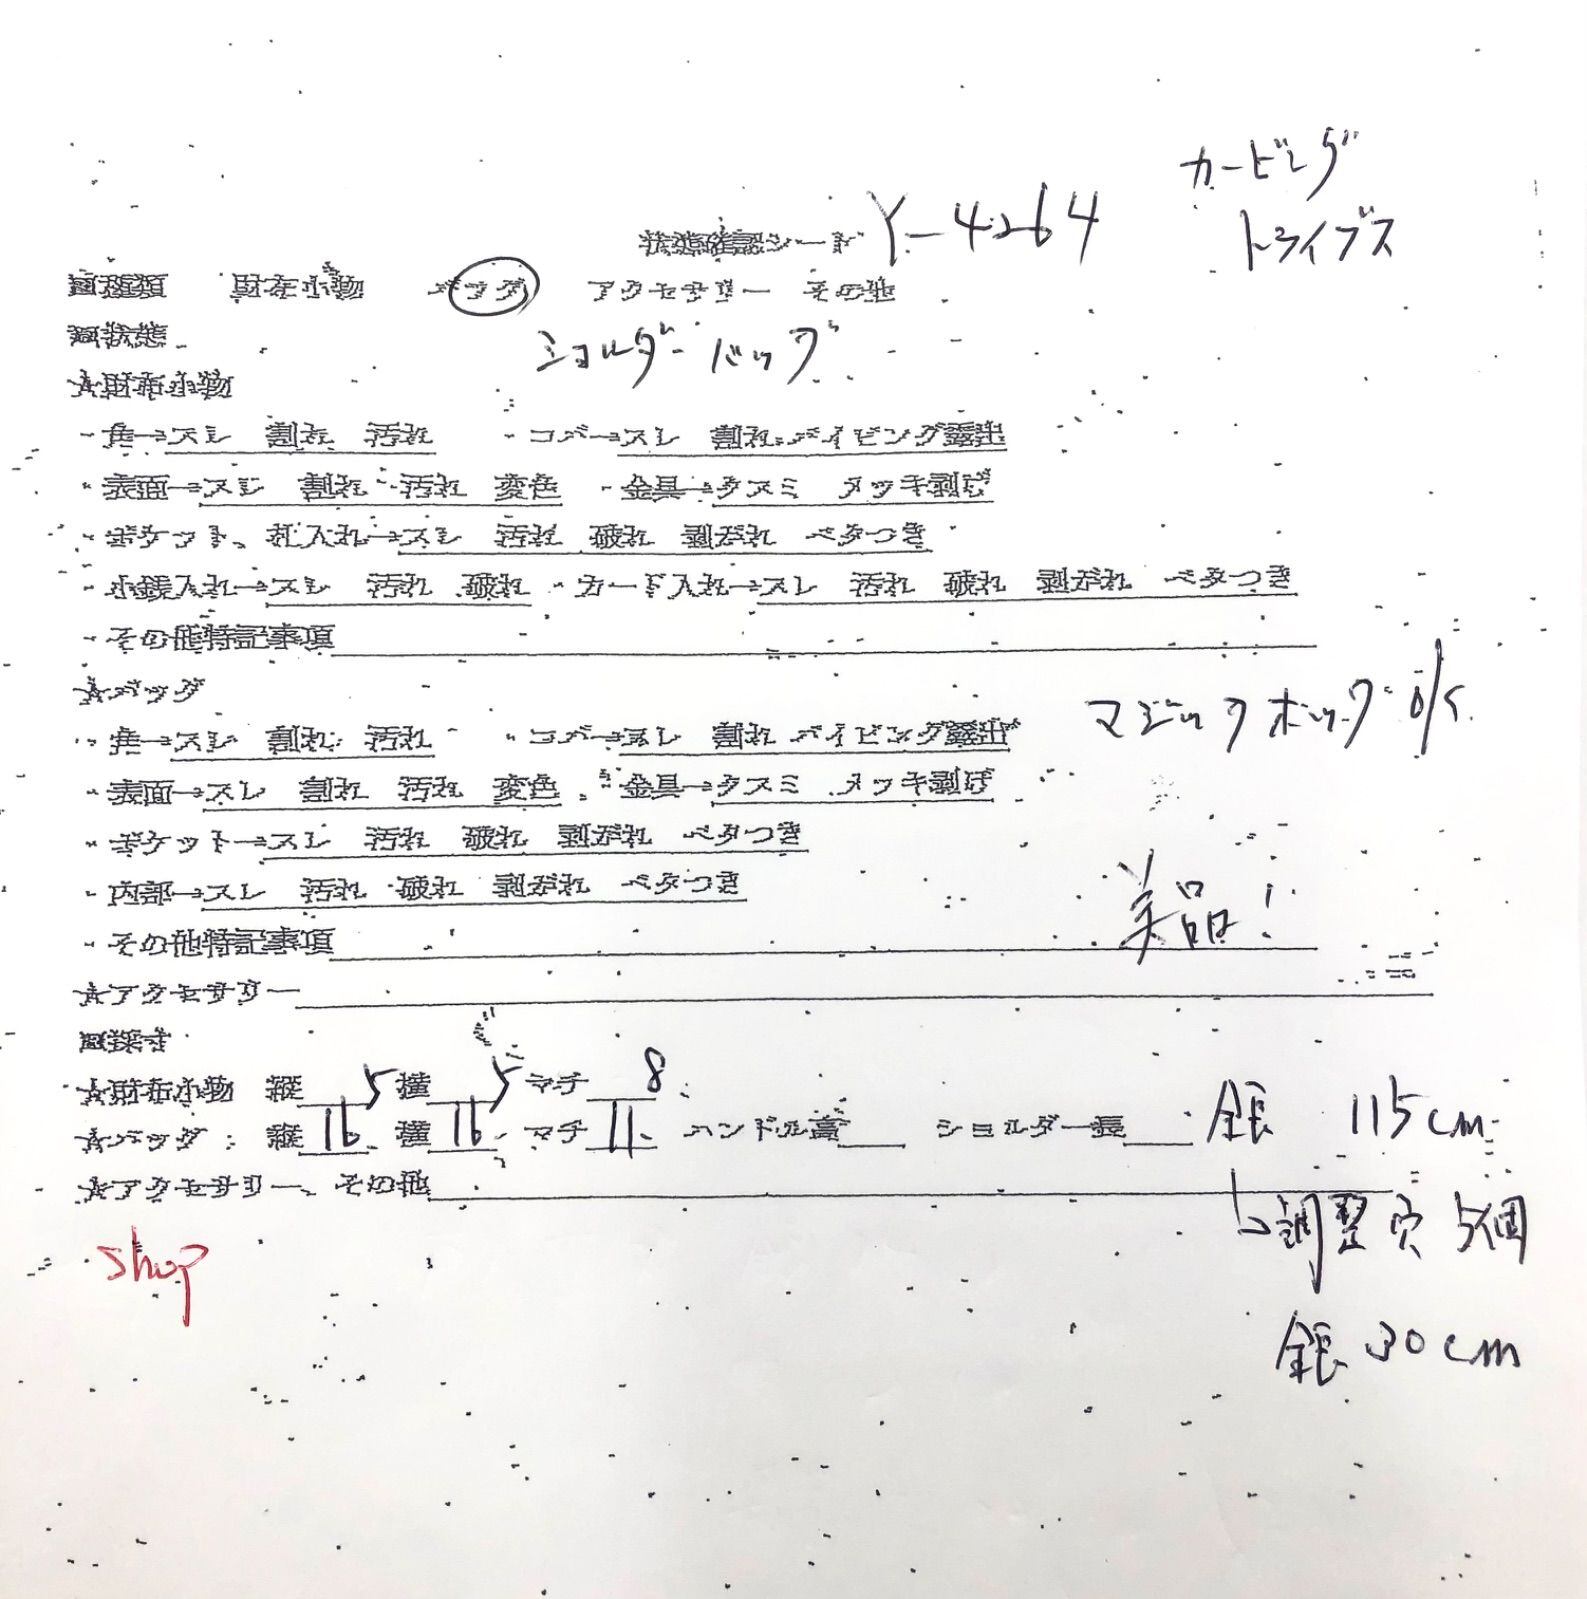 カービング
トライブス
状態確認シート Y-4264
■種類 財布小物 バッグ アクセサリー その他
■状態
ショルダーバッグ
★財布小物
・角→スレ 割れ 汚れ ・コバ→スレ 割れ パイピング露出
・表面→スレ 割れ 汚れ 変色 ・金具→クスミ メッキ剥げ
・ポケット、札入れ→スレ 汚れ 破れ 剥がれ ベタつき
・小銭入れ→スレ 汚れ 破れ ・カード入れ→スレ 汚れ 破れ 剥がれ ベタつき
・その他特記事項
★バッグ
マジックホック
・角→スレ 割れ 汚れ ・コバ→スレ 割れ パイピング露出
・表面→スレ 割れ 汚れ 変色 ・金具→クスミ メッキ剥げ
・ポケット→スレ 汚れ 破れ 剥がれ ベタつき
・内部→スレ 汚れ 破れ 剥がれ ベタつき
美品!
・その他特記事項
★アクセサリー
■採寸
★財布小物 縦 5 横 5 マチ 8
★バッグ:縦 16 横 16 マチ 11 ハンドル高 ショルダー長 全長 115cm
★アクセサリー、その他
↳調整穴 5個
shop
全長 30cm